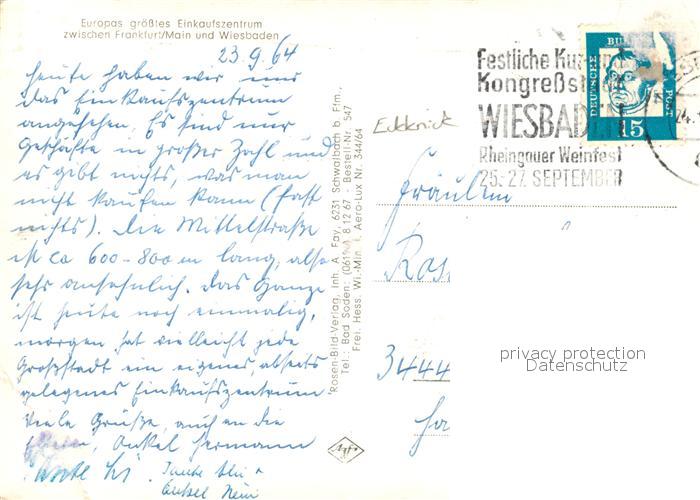 Europas größtes Einkaufszentrum
zwischen Frankfurt/Main und Wiesbaden
23.9.64
Heute haben wir uns
das Einkaufszentrum
angesehen. Es sind nur
Geschäfte in großer Zahl und
es gibt nichts, was man
nicht kaufen kann (fast
nichts). Die Mittelstraße
ist ca 600-800 m lang, also
sehr ansehnlich. Das Ganze
ist heute noch einmalig,
morgen hat vielleicht jede
Großstadt ein eigenes, abseits
gelegenes Einkaufszentrum
Viele Grüße, auch an die
Onkel Hermann
Tante
Rosen-Bild-Verlag, Inh. A. Fay, 6231 Schwalbach b. Ffm.,
Tel.: Bad Soden: 8 12 67 · Bestell-Nr. 547
Frei. Hess. Wi.-Min Aero-Lux Nr. 344/64
Agfa
Eckknick
Festliche Kur- und
Kongreßst
WIESBADEN
Rheingauer Weinfest
25.-27. SEPTEMBER
DEUTSCHE BUN POST
15
Fräulein
Ros
3444
privacy protection
Datenschutz